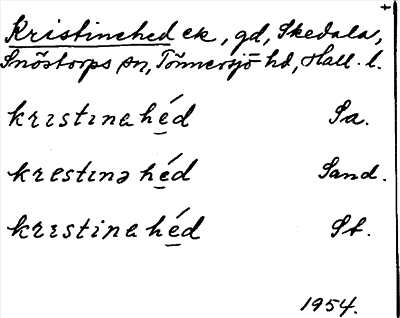 +
Kristinehed ek, gd, Skedala,
Snöstorps sn, Tönnersjö hd, Hall. l.
krɪstɪna hé̱d Sa.
krestɪnə hé̱d Sand.
krɪstina hé̱d St.
1954.